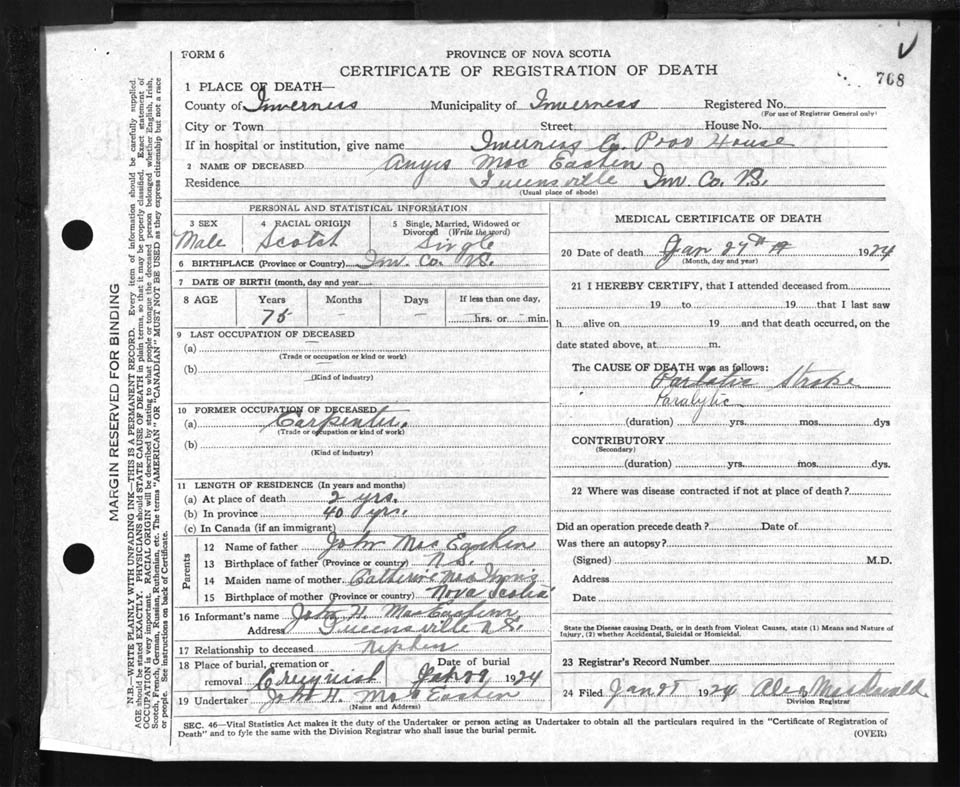 FORM 6
PROVINCE OF NOVA SCOTIA
CERTIFICATE OF REGISTRATION OF DEATH
768
1 PLACE OF DEATH—
County of Inverness Municipality of Inverness Registered No.
(For use of Registrar General only)
City or Town Street House No.
If in hospital or institution, give name Inverness Co. Poor House
2 NAME OF DECEASED Angus Mac Eachen
Residence Queensville Inv. Co. N.S.
(Usual place of abode)
PERSONAL AND STATISTICAL INFORMATION
3 SEX 4 RACIAL ORIGIN 5 Single, Married, Widowed or Divorced (Write the word)
Male Scotch Single
6 BIRTHPLACE (Province or Country) Inv. Co. N.S.
7 DATE OF BIRTH (month, day and year
8 AGE Years Months Days If less than one day,
75 — — hrs. or min.
9 LAST OCCUPATION OF DECEASED
(a)
(Trade or occupation or kind or work)
(b)
(Kind of industry)
10 FORMER OCCUPATION OF DECEASED
(a) Carpenter.
(Trade or occupation or kind of work)
(b)
(Kind of industry)
11 LENGTH OF RESIDENCE (In years and months)
(a) At place of death 2 yrs.
(b) In province 40 yrs.
(c) In Canada (if an immigrant)
Parents
12 Name of father John Mac Eachen
13 Birthplace of father (Province or country) N.S.
14 Maiden name of mother Catherine
15 Birthplace of mother (Province or country) Nova Scotia
16 Informant's name John H. MacEachen
Address Queensville N.S.
17 Relationship to deceased Nephew
18 Place of burial, cremation or removal Creignish Date of burial Jan 29 1924
19 Undertaker John H. Mac Eachen
(Name and Address)
MEDICAL CERTIFICATE OF DEATH
20 Date of death Jan 27th 1924
(Month, day and year)
21 I HEREBY CERTIFY, that I attended deceased from
19 to 19 that I last saw
h alive on 19 and that death occurred, on the
date stated above, at m.
The CAUSE OF DEATH was as follows:
Stroke
Paralytic
(duration) yrs. mos. dys
CONTRIBUTORY
(Secondary)
(duration) yrs. mos. dys.
22 Where was disease contracted if not at place of death?
Did an operation precede death? Date of
Was there an autopsy?
(Signed) M.D.
Address
Date
State the Disease causing Death, or in death from Violent Causes, state (1) Means and Nature of
Injury, (2) whether Accidental, Suicidal or Homicidal.
23 Registrar's Record Number
24 Filed Jan 1924 Alex MacDonald
Division Registrar
SEC. 46—Vital Statistics Act makes it the duty of the Undertaker or person acting as Undertaker to obtain all the particulars required in the "Certificate of Registration of
Death" and to fyle the same with the Division Registrar who shall issue the burial permit.
(OVER)
MARGIN RESERVED FOR BINDING
N.B.—WRITE PLAINLY WITH UNFADING INK—THIS IS A PERMANENT RECORD. Every item of information should be carefully supplied.
AGE should be stated EXACTLY. PHYSICIANS should STATE CAUSE OF DEATH in plain terms, so that it may be properly classified. Exact statement of
OCCUPATION is very important. RACIAL ORIGIN will be described by stating to what people or tongue the deceased person belonged whether English, Irish,
Scotch, French, German, Russian, Ruthenian, etc. The terms "AMERICAN" or "CANADIAN" MUST NOT BE USED as they express citizenship but not a race
or people. See instructions on back of Certificate.